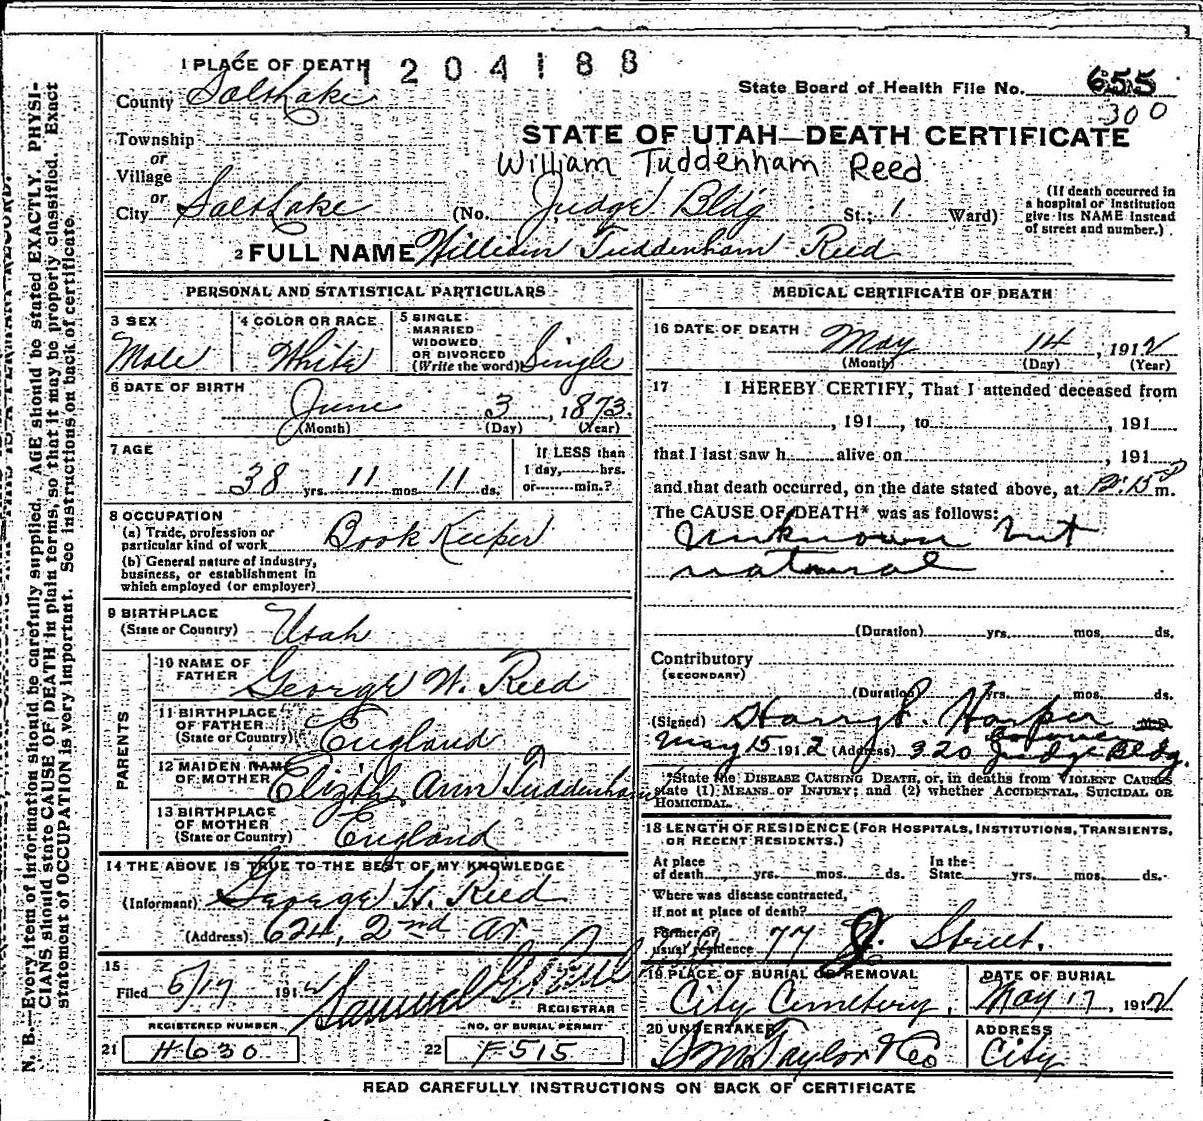 1 PLACE OF DEATH
1 2 0 4 1 8 8
County Salt Lake
State Board of Health File No. 655
300
Township
or
Village
or
City Salt Lake
STATE OF UTAH—DEATH CERTIFICATE
William Tuddenham Reed
(No. Judge Bldg St.; 1 Ward)
(If death occurred in
a hospital or institution
give its NAME instead
of street and number.)
2 FULL NAME William Tuddenham Reed
PERSONAL AND STATISTICAL PARTICULARS
3 SEX
Male
4 COLOR OR RACE
White
5 SINGLE
MARRIED
WIDOWED
OR DIVORCED
(Write the word) Single
6 DATE OF BIRTH
June 3, 1873.
(Month) (Day) (Year)
7 AGE
38 yrs. 11 mos. 11 ds.
If LESS than
1 day, hrs.
or min.?
8 OCCUPATION
(a) Trade, profession or
particular kind of work Book Keeper
(b) General nature of industry,
business, or establishment in
which employed (or employer)
9 BIRTHPLACE
(State or Country) Utah
PARENTS
10 NAME OF
FATHER George W. Reed
11 BIRTHPLACE
OF FATHER
(State or Country) England
12 MAIDEN NAME
OF MOTHER Elizth Ann Tuddenham
13 BIRTHPLACE
OF MOTHER
(State or Country) England
14 THE ABOVE IS TRUE TO THE BEST OF MY KNOWLEDGE
(Informant) George W. Reed
(Address) 624, 2nd Av
15
Filed 5/17 1912 Samuel G. Paul
REGISTRAR
REGISTERED NUMBER
21 H630
NO. OF BURIAL PERMIT
22 F515
MEDICAL CERTIFICATE OF DEATH
16 DATE OF DEATH May 14, 1912
(Month) (Day) (Year)
17 I HEREBY CERTIFY, That I attended deceased from
, 191 , to , 191
that I last saw h alive on , 191
and that death occurred, on the date stated above, at 12:15 P m.
The CAUSE OF DEATH* was as follows:
Unknown but
natural
(Duration) yrs. mos. ds.
Contributory
(SECONDARY)
(Duration) yrs. mos. ds.
(Signed) Harry S. Harper M.D.
Coroner
May 15 1912 (Address) 320 Judge Bldg.
*State the DISEASE CAUSING DEATH, or, in deaths from VIOLENT CAUSES
state (1) MEANS OF INJURY; and (2) whether ACCIDENTAL, SUICIDAL OR
HOMICIDAL.
18 LENGTH OF RESIDENCE (FOR HOSPITALS, INSTITUTIONS, TRANSIENTS,
OR RECENT RESIDENTS.)
At place
of death yrs. mos. ds.
In the
State yrs. mos. ds.
Where was disease contracted,
If not at place of death?
Former or
usual residence 77 J. Street.
19 PLACE OF BURIAL OR REMOVAL
City Cemetery,
DATE OF BURIAL
May 17, 1912
20 UNDERTAKER
S M Taylor & Co
ADDRESS
City
READ CAREFULLY INSTRUCTIONS ON BACK OF CERTIFICATE
N. B.—Every item of information should be carefully supplied. AGE should be stated EXACTLY. PHYSI-
CIANS should state CAUSE OF DEATH in plain terms, so that it may be properly classified. Exact
statement of OCCUPATION is very important. See instructions on back of certificate.